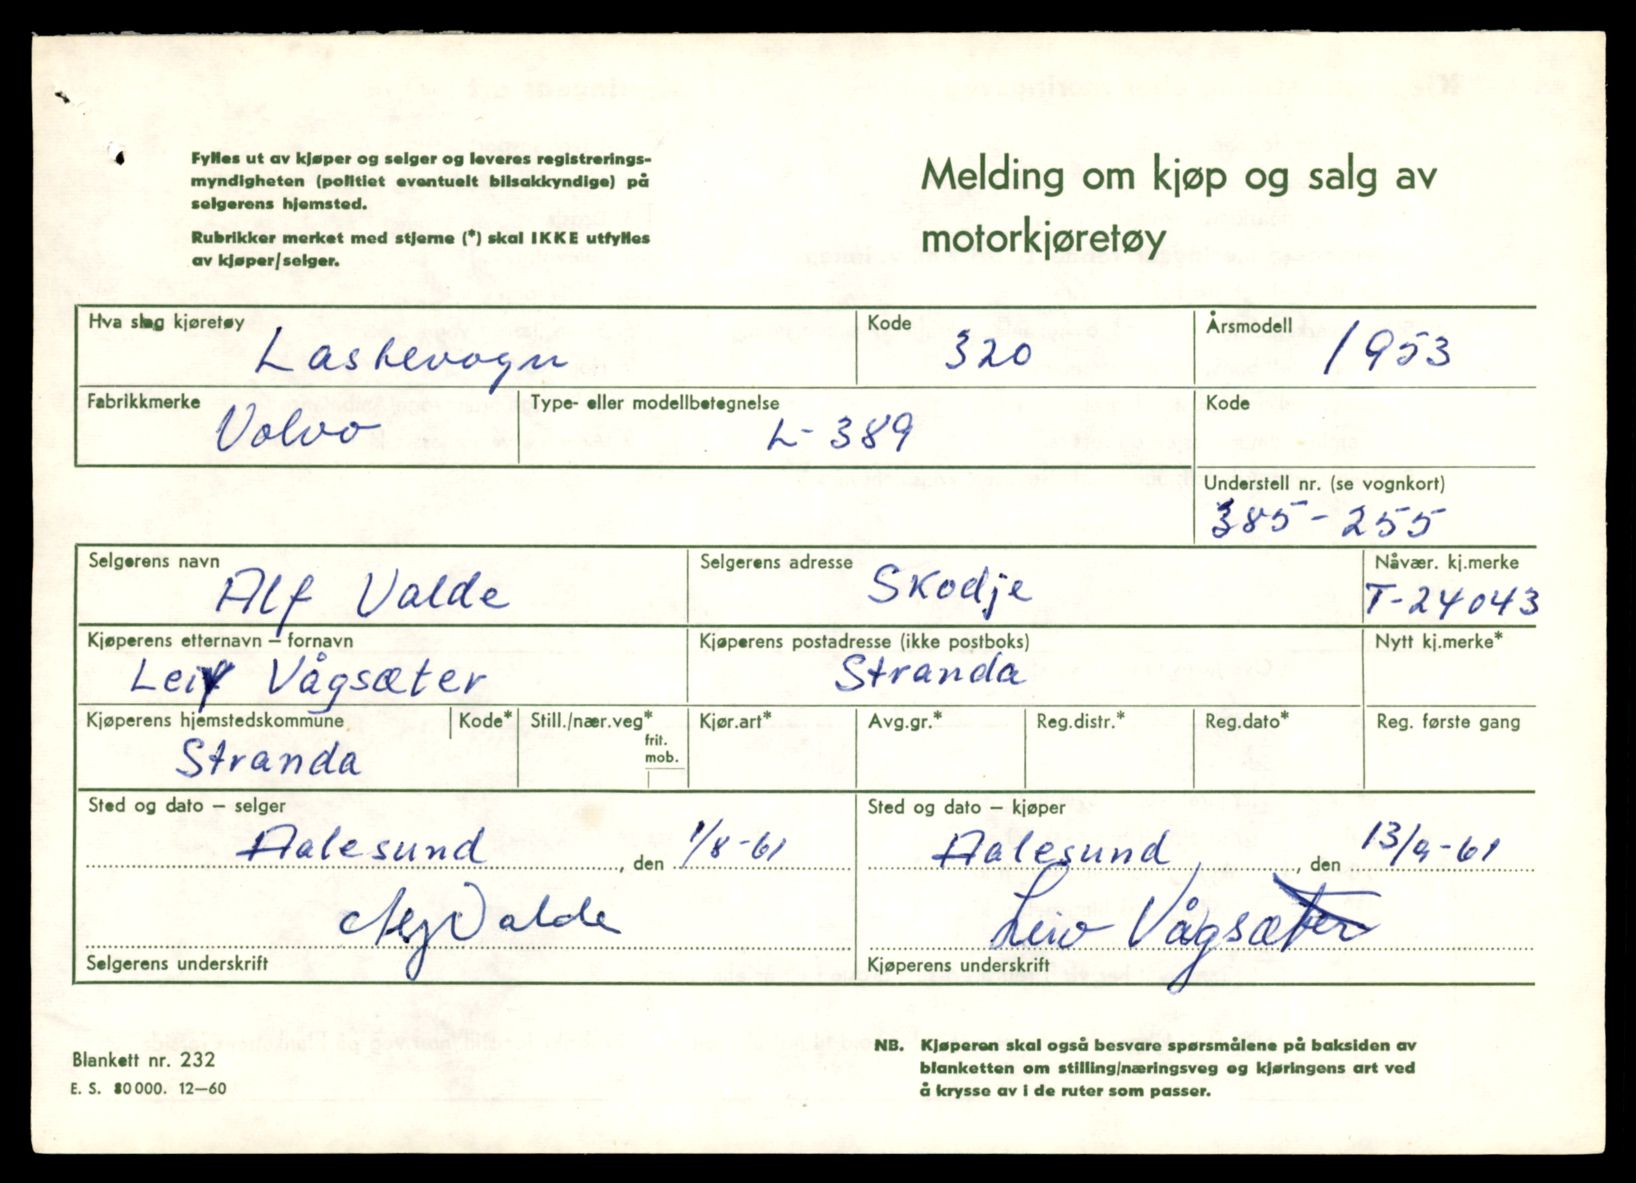 Fylles ut av kjøper og selger og leveres registrerings-
myndigheten (politiet eventuelt bilsakkyndige) på
selgerens hjemsted.
Rubrikker merket med stjerne (*) skal IKKE utfylles
av kjøper/selger.
Melding om kjøp og salg av
motorkjøretøy
Hva slag kjøretøy
Lastevogn
Kode
320
Årsmodell
1953
Fabrikkmerke
Volvo
Type- eller modellbetegnelse
L-389
Kode
Understell nr. (se vognkort)
385-255
Selgerens navn
Alf Valde
Selgerens adresse
Skodje
Nåvær. kj.merke
T-24043
Kjøperens etternavn – fornavn
Leif Vågsæter
Kjøperens postadresse (ikke postboks)
Stranda
Nytt kj.merke*
Kjøperens hjemstedskommune
Stranda
Kode*
Still./nær.veg*
frit.
mob.
Kjør.art*
Avg.gr.*
Reg.distr.*
Reg.dato*
Reg. første gang
Sted og dato – selger
Aalesund, den 1/8-61
Alf Valde
Selgerens underskrift
Sted og dato – kjøper
Aalesund, den 13/9-61
Leiv Vågsæter
Kjøperens underskrift
Blankett nr. 232
E. S. 80 000. 12—60
NB. Kjøperen skal også besvare spørsmålene på baksiden av
blanketten om stilling/næringsveg og kjøringens art ved
å krysse av i de ruter som passer.